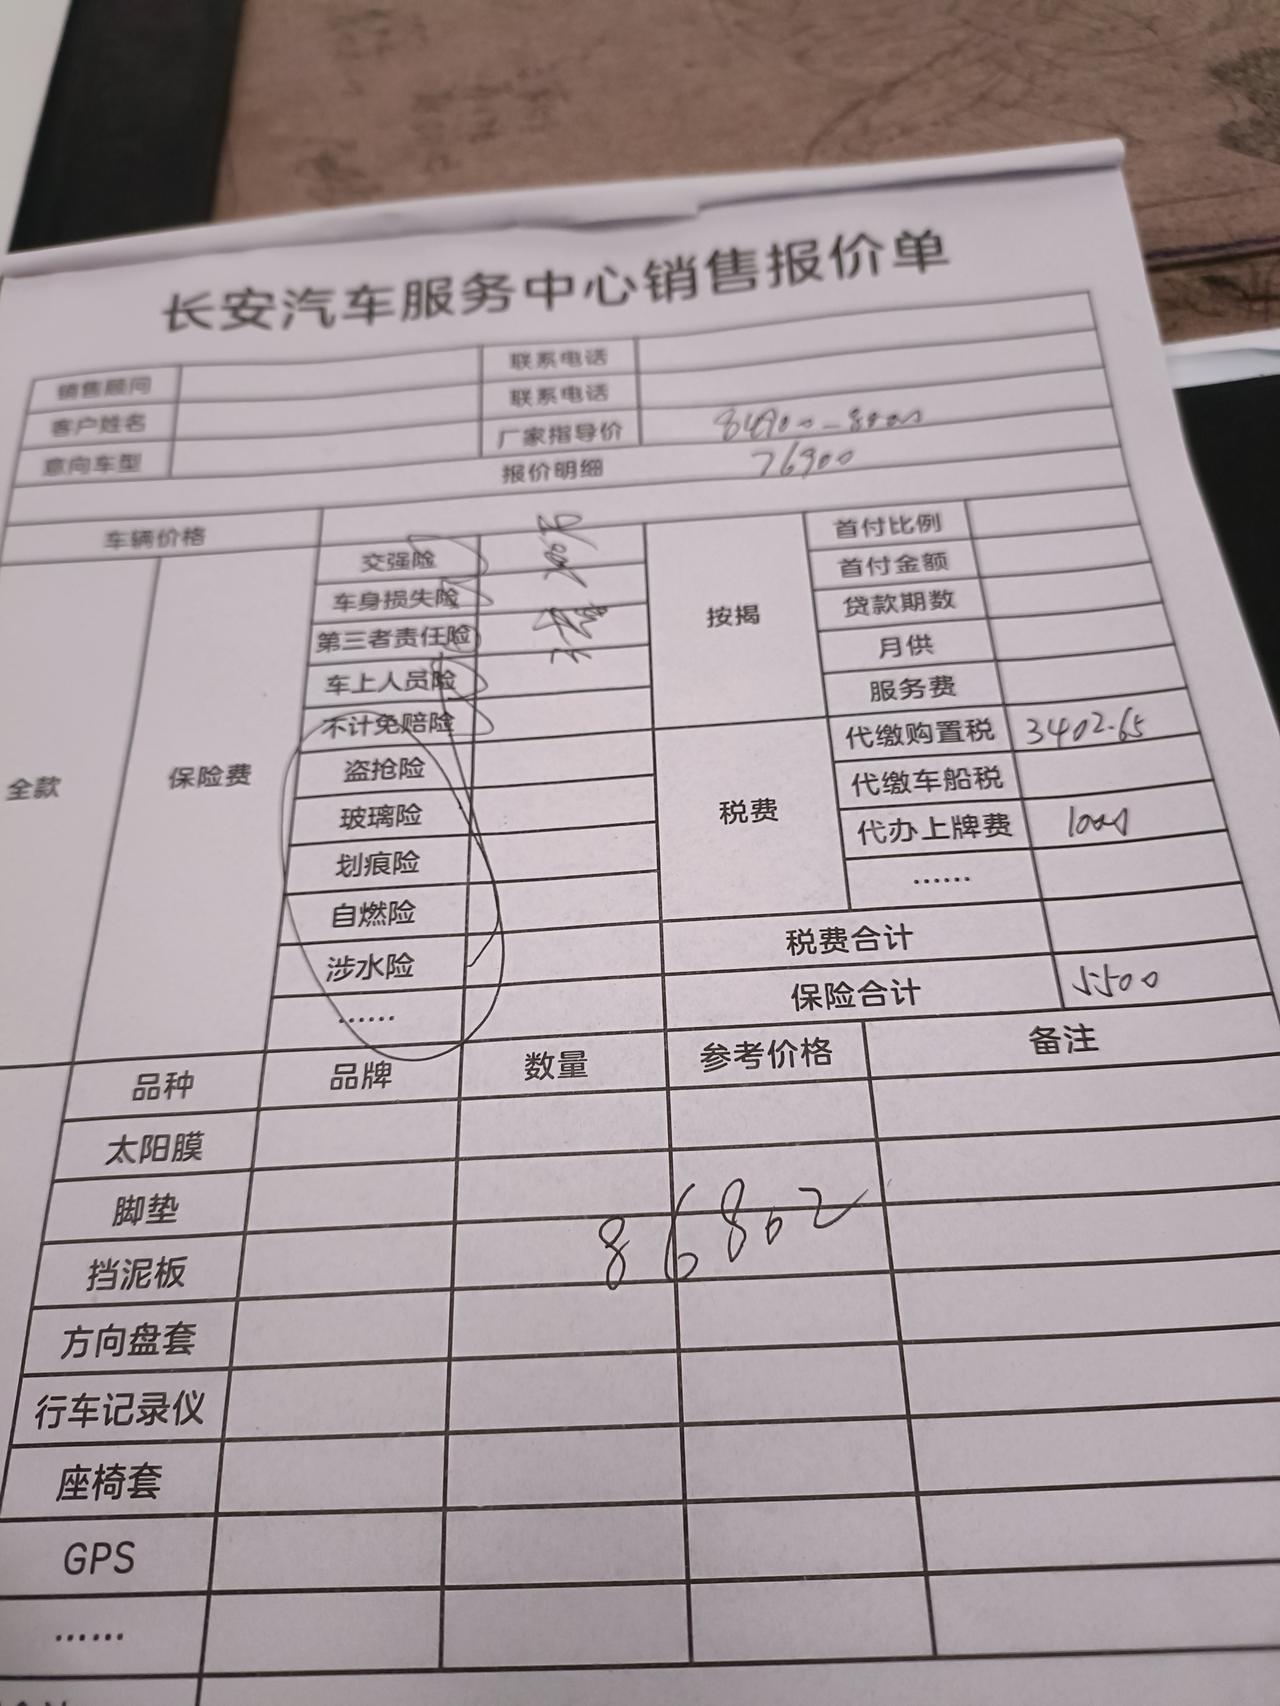 长安汽车服务中心销售报价单
销售顾问 联系电话
客户姓名 联系电话
意向车型 厂家指导价 84900-8000
报价明细 76900
车辆价格
全款 保险费 交强险 按揭 首付比例
车身损失险 首付金额
第三者责任险 贷款期数
车上人员险 月供
不计免赔险 服务费
盗抢险 税费 代缴购置税 3402.65
玻璃险 代缴车船税
划痕险 代办上牌费 1000
自燃险 ……
涉水险 税费合计
…… 保险合计 5500
品种 品牌 数量 参考价格 备注
太阳膜
脚垫 86802
挡泥板
方向盘套
行车记录仪
座椅套
GPS
……